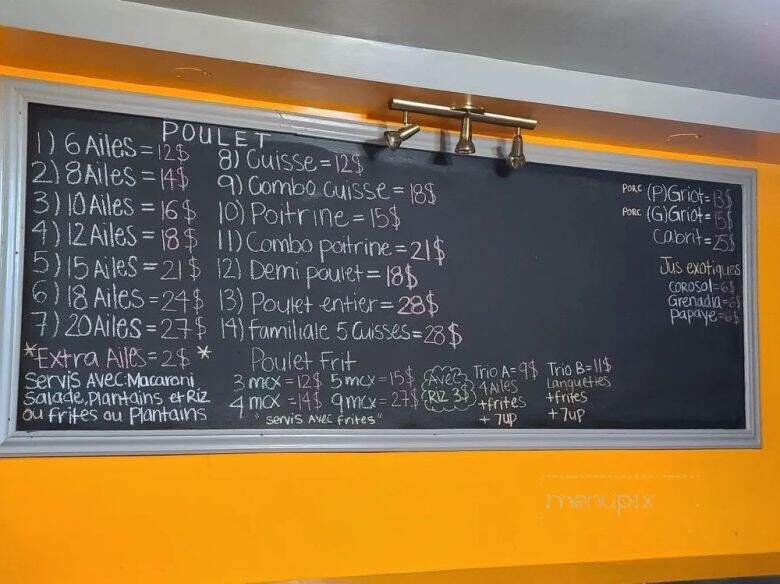 POULET
1) 6 Ailes = 12$
2) 8 Ailes = 14$
3) 10 Ailes = 16$
4) 12 Ailes = 18$
5) 15 Ailes = 21$
6) 18 Ailes = 24$
7) 20 Ailes = 27$
*Extra Ailes = 2$ *
Servis Avec: Macaroni
Salade, Plantains et Riz
ou frites ou Plantains
8) Cuisse = 12$
9) Combo cuisse = 18$
10) Poitrine = 15$
11) Combo poitrine = 21$
12) Demi poulet = 18$
13) Poulet entier = 28$
14) Familiale 5 Cuisses = 28$
Poulet Frit
3 mcx = 12$ 5 mcx = 15$
4 mcx = 14$ 9 mcx = 27$
"servis Avec frites"
Avec
Riz 3$
Trio A = 9$
4 Ailes
+frites
+ 7up
Trio B = 11$
Languettes
+frites
+ 7up
PORC (P)Griot = 13$
PORC (G)Griot = 15$
Cabrit = 25$
Jus exotiques
corosol = 6$
Grenadia = 6$
papaye = 6$
menupix